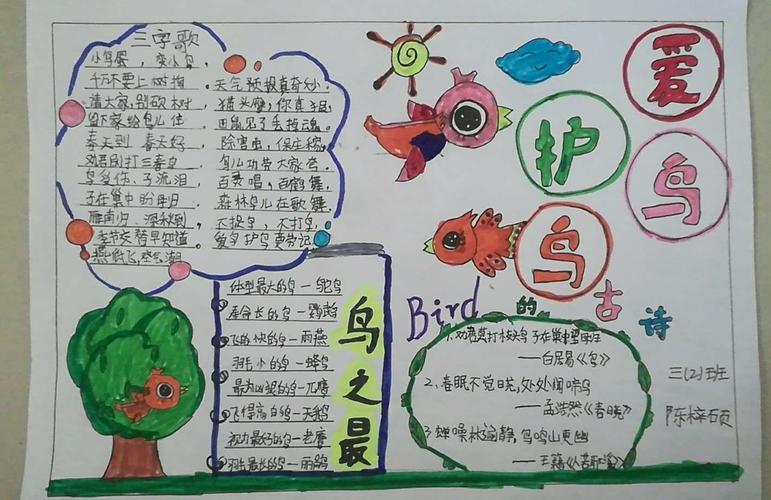 三字歌
小鸟蛋,变小鸟,
千万不要上树掏,
请大家,别砍树,
留下家给鸟儿住
春天到,春天好,
劝君别打三春鸟
鸟受伤、子流泪,
子在巢中盼母归
雁南归、深秋到,
季节交替早知道,
燕低飞,空气潮
天气预报真奇妙.
猫头鹰,你真狠,
田鼠见了丢掉魂.
除害虫,保庄稼,
鸟儿功劳大家夸.
百灵唱,百鹤舞,
森林鸟儿在歌舞
不捉鸟,不打鸟,
爱鸟护鸟要劳记
爱鸟
护鸟
鸟之最
体型最大的鸟—鸵鸟
寿命长的鸟—鹦鹉
飞的快的鸟—雨燕
羽毛小的鸟—蜂鸟
最为凶猛的鸟—兀鹰
飞得高的鸟—天鹅
视力最好的鸟—老鹰
羽毛最长的鸟—
Bird的古诗
1.劝君莫打枝头鸟 子在巢中望母归
——白居易《鸟》
2、春眠不觉晓,处处闻啼鸟
——孟浩然《春晓》
3 蝉噪林逾静,鸟鸣山更幽
——王籍《入若耶溪》
三(2)班
陈梓硕